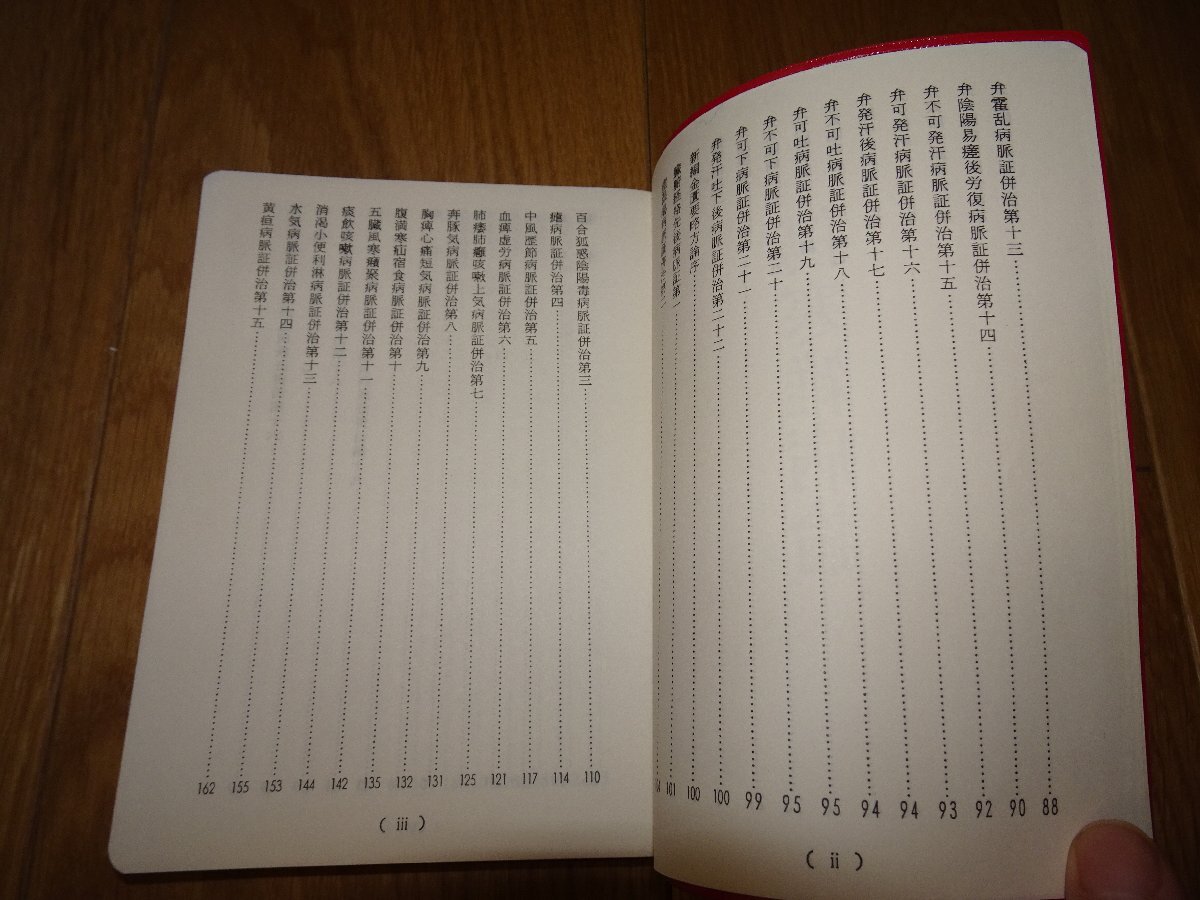 弁霍乱病脈証併治第十三……88
弁陰陽易瘥後労復病脈証併治第十四……90
弁不可発汗病脈証併治第十五……92
弁可発汗病脈証併治第十六……93
弁発汗後病脈証併治第十七……94
弁不可吐病脈証併治第十八……94
弁可吐病脈証併治第十九……95
弁不可下病脈証併治第二十……95
弁可下病脈証併治第二十一……99
弁発汗吐下後病脈証併治第二十二……100
新編金匱要略方論序……100
臓腑経絡先後病脈証第一……101
( ii )
百合狐惑陰陽毒病脈証併治第三……110
瘧病脈証併治第四……114
中風歴節病脈証併治第五……117
血痺虚労病脈証併治第六……121
肺痿肺癰咳嗽上気病脈証併治第七……125
奔豚気病脈証併治第八……131
胸痺心痛短気病脈証併治第九……132
腹満寒疝宿食病脈証併治第十……135
五臓風寒積聚病脈証併治第十一……142
痰飲咳嗽病脈証併治第十二……144
消渇小便利淋病脈証併治第十三……153
水気病脈証併治第十四……155
黄疸病脈証併治第十五……162
( iii )